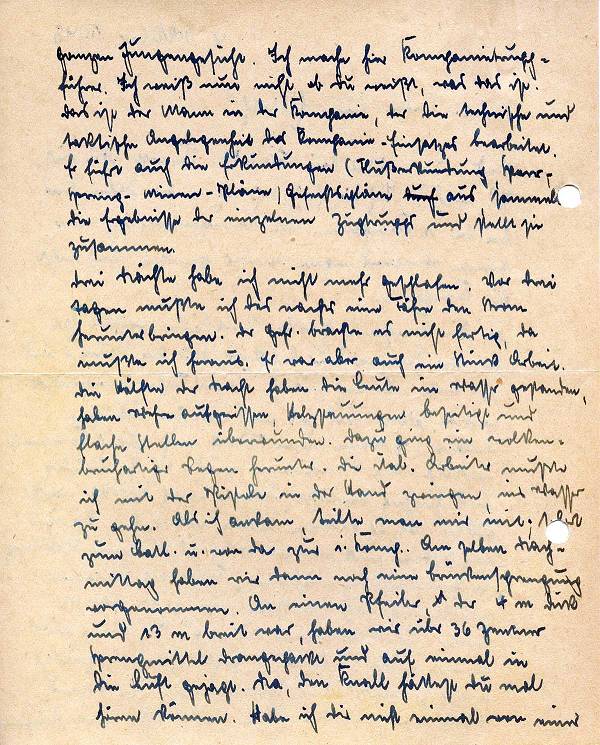 ganzen Jungengesicht. Ich mache hier Kompanietrupp-
führer. Ich weiß nun nicht, ob du weißt, was das ist.
Das ist der Mann in der Kompanie, der die technische und
taktische Angelegenheit des Kompanie-Einsatzes bearbeitet.
Er führt auch die Erkundungen (Flußerkundung, Sperr-,
Spreng- Minen-Pläne) Gefechtspläne aus sammelt
die Ergebnisse der einzelnen Zugtrupps und stellt sie
zusammen.
Drei Nächte habe ich nicht mehr geschlafen. Vor drei
Tagen mußte ich des nachts eine Fähre den Strom
herunterbringen. Der Gefr. brachte es nicht fertig, da
mußte ich heraus. Er war aber auch ein Stück Arbeit.
Die Hälfte der Nacht haben die Leute im Wasser gestanden,
haben Wehre aufgerissen, beseitigt und
flache Stellen überwunden. Dazu ging ein wolken-
bruchartiger Regen herunter. Die ital. Arbeiter mußte
ich mit der Pistole in der Hand zwingen, ins Wasser
zu gehen. Als ich ankam, teilte man mir mit: sofort
zum Batl. u. von da zur 1. Komp.. Am selben Nach-
mittag haben wir dann noch eine Brückensprengung
vorgenommen. An einen Pfeiler, der 4 m dick
und 13 m breit war, haben wir über 36 Zentner
Sprengmittel drangepackt und auf einmal in
die Luft gejagt. Na, den Knall hättest du mal
hören können. Habe ich dir nicht einmal von einer